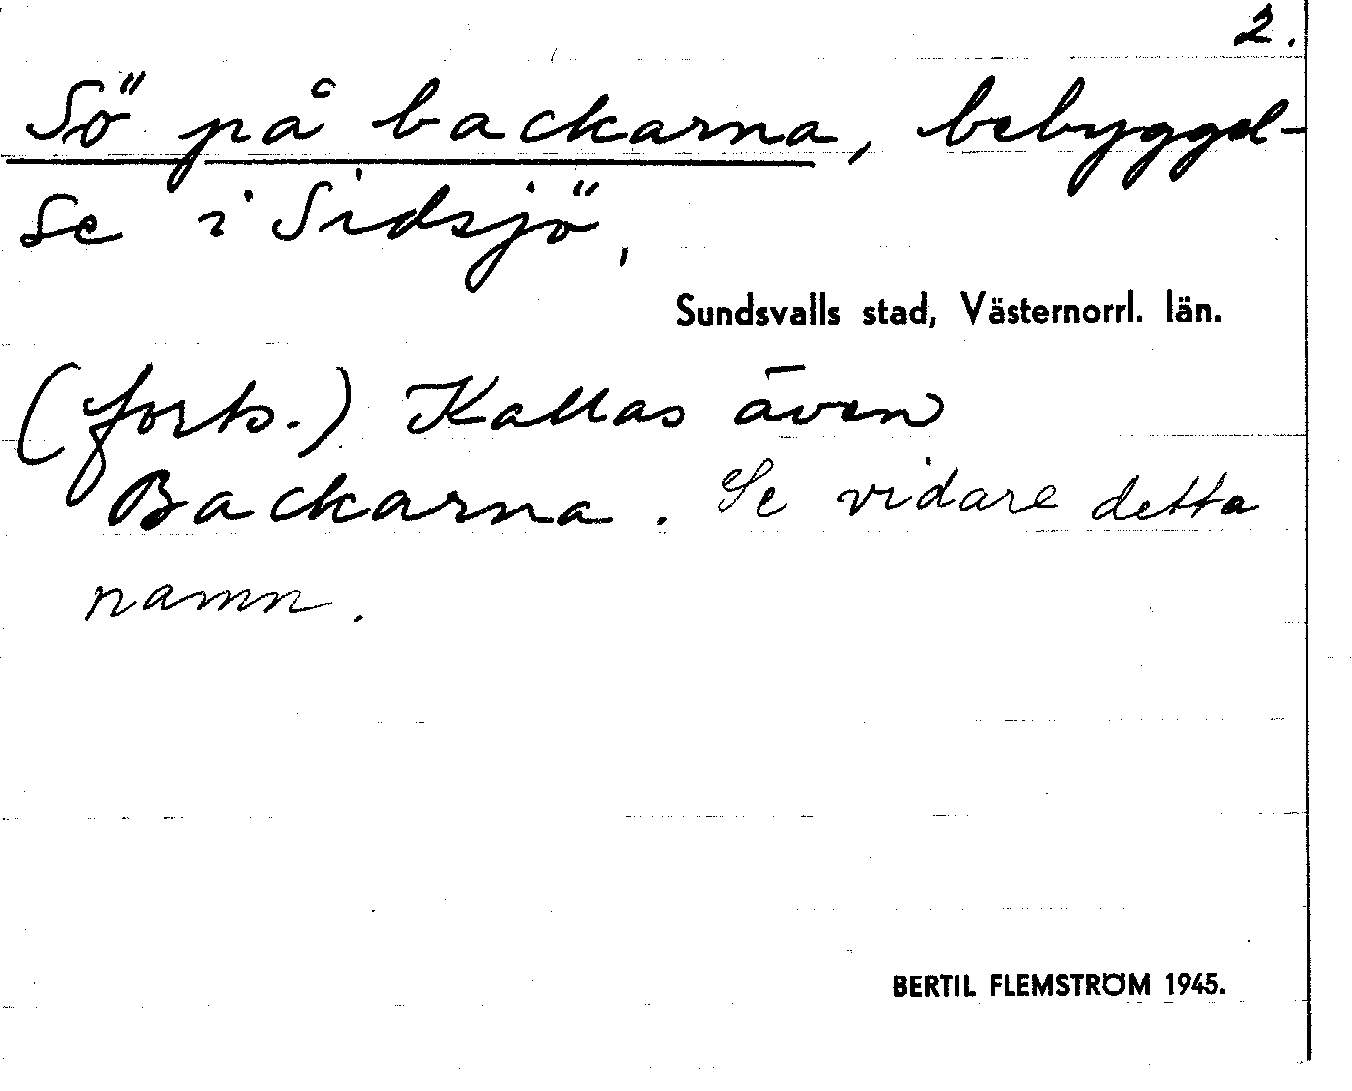 2.
Sö på backarna, bebyggel-
se i Sidsjö,
Sundsvalls stad, Västernorrl. län.
(forts.) Kallas även
Backarna. Se vidare detta
namn.
BERTIL FLEMSTRÖM 1945.